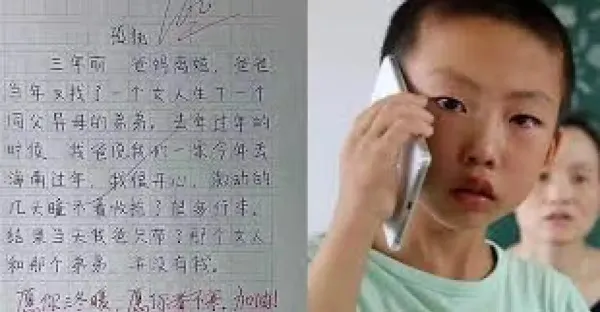 三年前 爸妈离婚,爸爸
当年又找了一个女人生下一个
同父异母的弟弟。去年过年的
时候,我爸说我们一家今年去
海南过年,我很开心,激动的
几天睡不着收拾了很多行李。
结果当天我爸只带了那个女人
和那个弟弟,并没有我。
愿你三冬暖,愿你春不寒,加油!